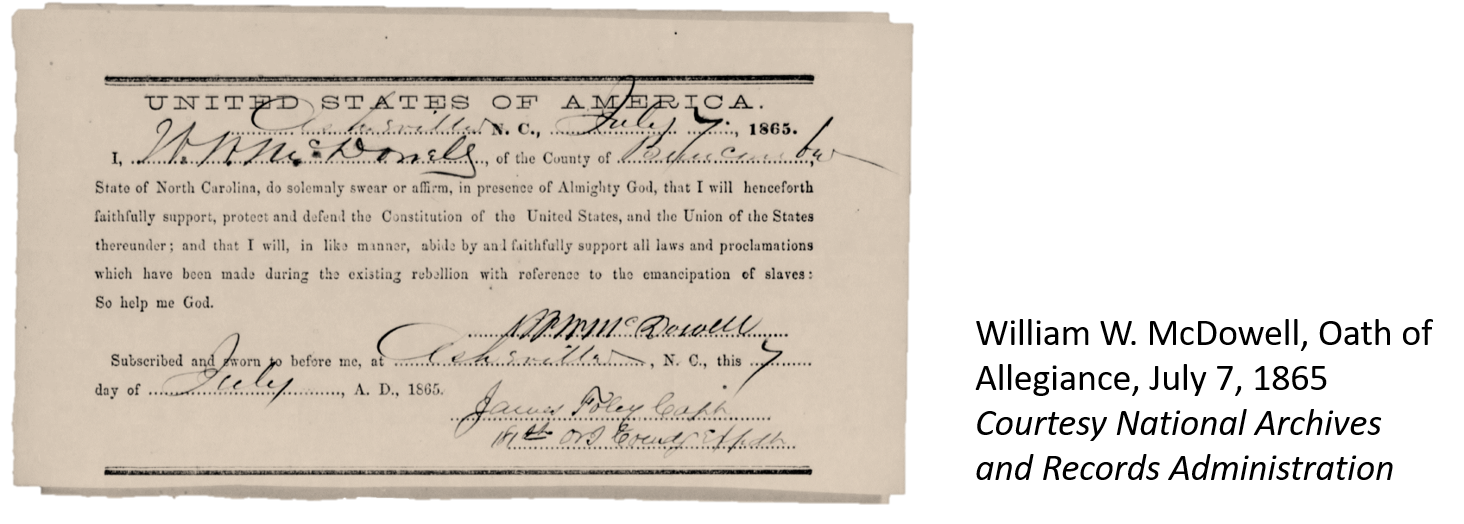 UNITED STATES OF AMERICA.
Asheville N. C., July 7, 1865.
I, W. W. McDowell, of the County of Buncombe
State of North Carolina, do solemnly swear or affirm, in presence of Almighty God, that I will henceforth
faithfully support, protect and defend the Constitution of the United States, and the Union of the States
thereunder; and that I will, in like manner, abide by and faithfully support all laws and proclamations
which have been made during the existing rebellion with reference to the emancipation of slaves:
So help me God.
W. W. McDowell
Subscribed and sworn to before me, at Asheville, N. C., this 7
day of July, A. D., 1865.
James Foley Capt
William W. McDowell, Oath of
Allegiance, July 7, 1865
Courtesy National Archives
and Records Administration